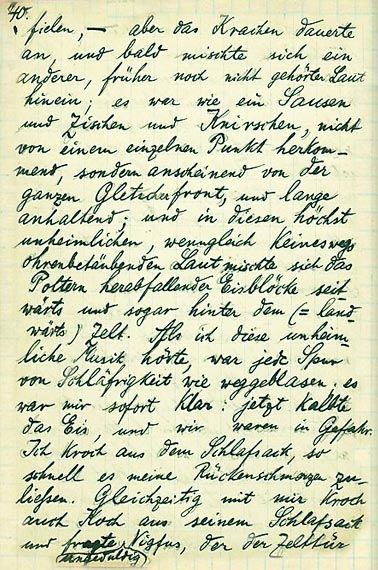 40.
fielen, — aber das Krachen dauerte
an, und bald mischte sich ein
anderer, früher noch nicht gehörter Laut
hinein; es war wie ein Sausen
und Zischen und Knirschen, nicht
von einem einzelnen Punkt herkom-
mend, sondern anscheinend von der
ganzen Gletscherfront, und lange
anhaltend; und in diesen höchst
unheimlichen, wenngleich keineswegs
ohrenbetäubenden Laut mischte sich das
Poltern herabfallender Eisblöcke seit-
wärts und sogar hinter dem (= land-
wärts) Zelt. Als ich diese unheim-
liche Musik hörte, war jede Spur
von Schläfrigkeit wie weggeblasen; es
war mir sofort klar: jetzt kalbte
das Eis, und wir waren in Gefahr.
Ich kroch aus dem Schlafsack, so
schnell es meine Rückenschmerzen zu-
liessen. Gleichzeitig mit mir kroch
auch Koch aus seinem Schlafsack
und fragte Vigfus, der der Zelttür
(ungeduldig)